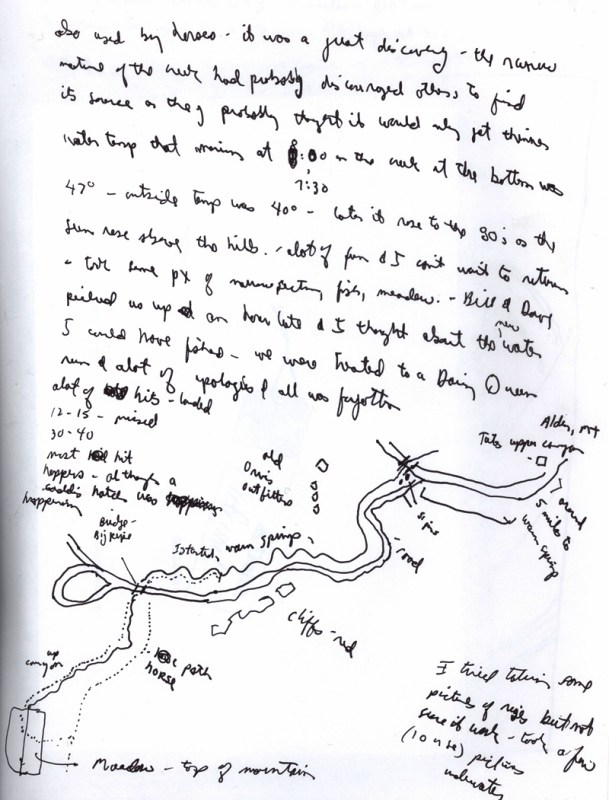 also used by horses - it was a great discovery - the narrow
nature of the creek had probably discouraged others to find
its source as they probably thought it would only get thinner
water temp that morning at 8:00 in the creek at the bottom was
7:30
47° - outside temp was 40° - later it rose to the 80's as the
sun rose above the hills. - alot of fun & I can't wait to return
- took some px of narrow section, fish, meadow. - Bill & Dave
picked us up an hour late & I thought about the new water
I could have fished - we were treated to a Dairy Queen
run & alot of apologies & all was forgotten
alot of hits - landed
12-15 - missed
30-40
most hit
hoppers - although a
caddis hatch was
happening
old
Orvis
outfitters
Alder, MT
upper canyon
5 miles to
warm spring
signs
road
Bridge -
warm springs
cliffs - red
up
canyon
path
horse
Meadow - top of mountain
I tried taking some
pictures of but not
sure it work - took a few
(10 or so) pictures
underwater